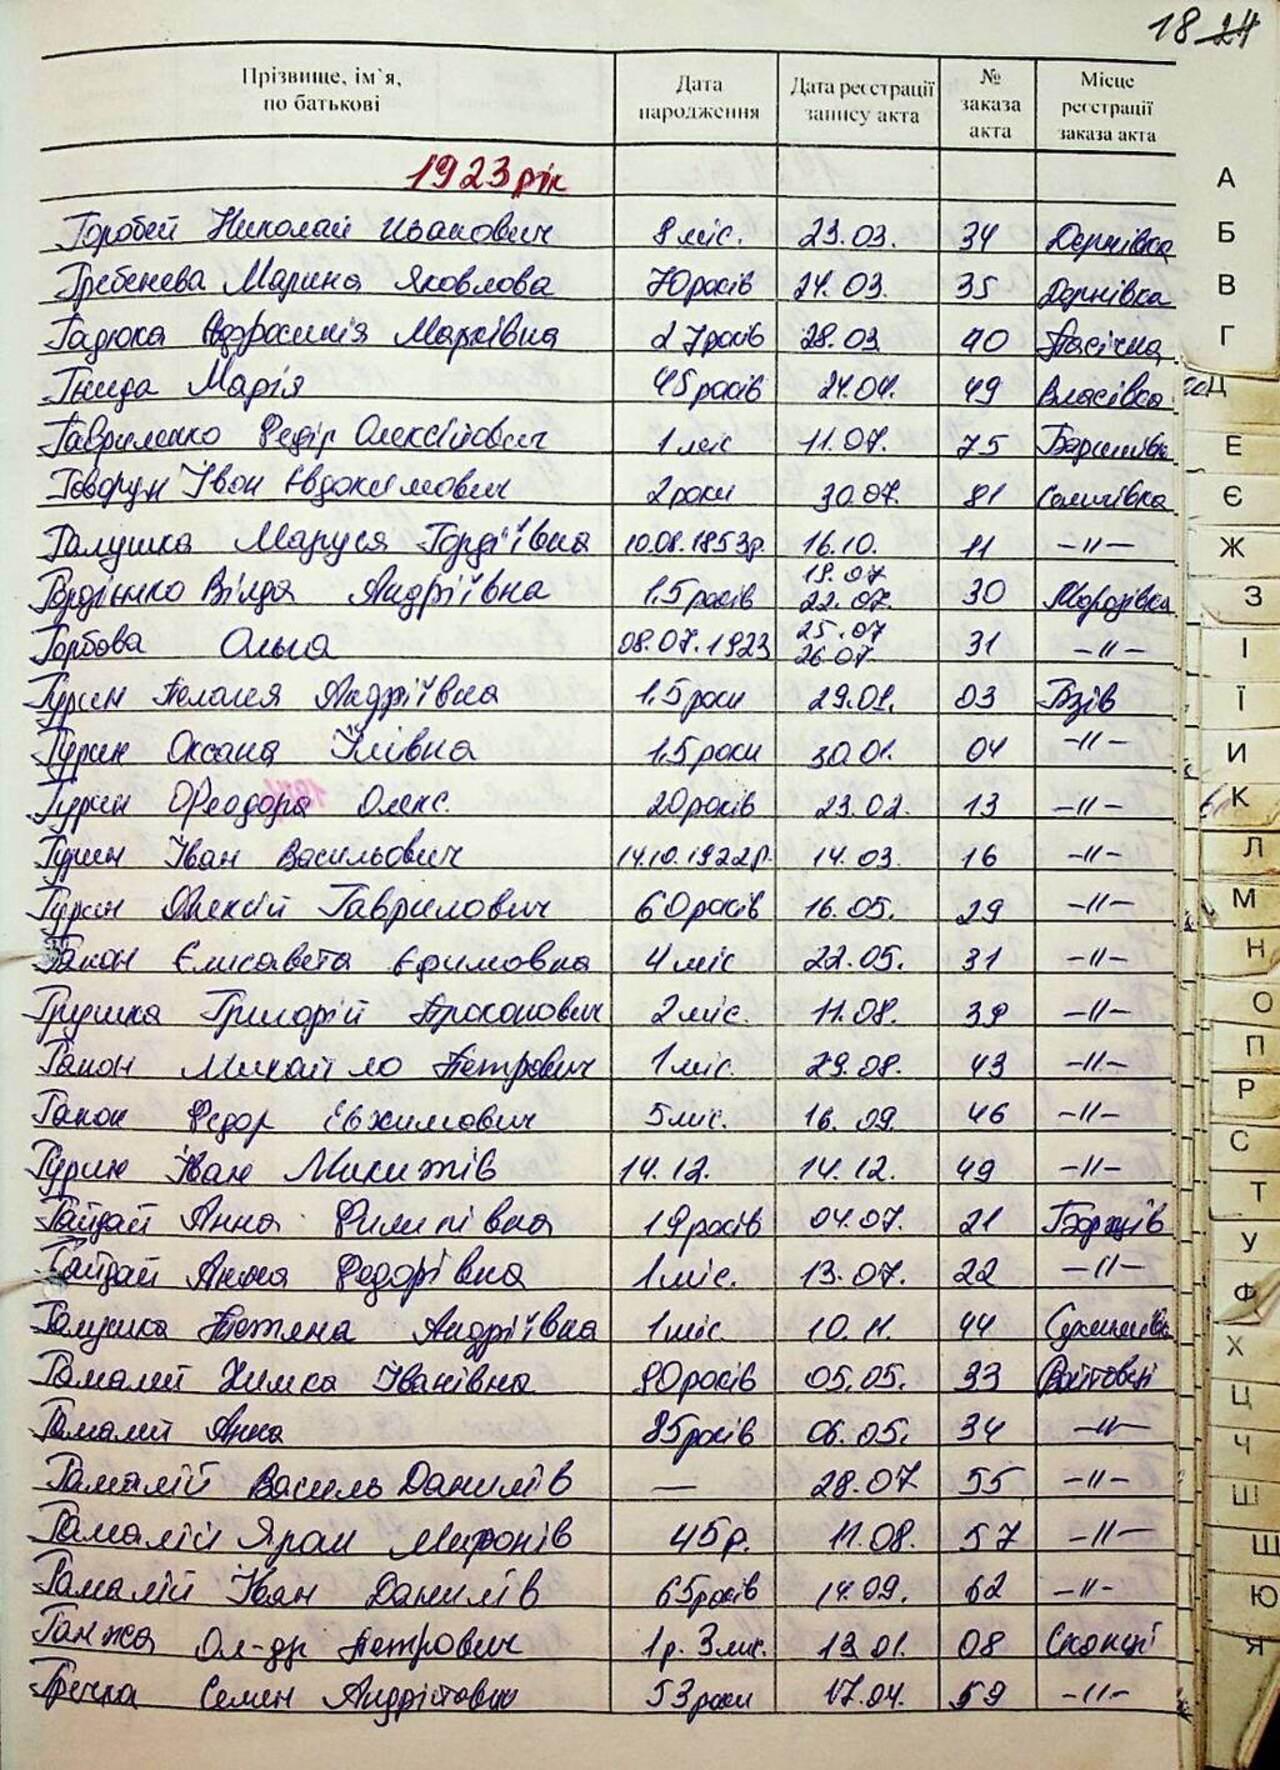 18 24
Прізвище, ім`я, по батькові Дата народження Дата реєстрації запису акта № заказа акта Місце реєстрації заказа акта
1923 рік
Горобей Николай Иванович 8 міс. 23.03. 34 Дернівка
Гребенева Марина Яковлова 70 років 24.03. 35 Дернівка
Гадюка Марківна 27 років 28.03 40 Пасічна
Гнида Марія 45 років 24.04. 49 Власівка
Гавриленко Федір Олексійович 1 міс 11.07. 75
Говорун Іван Евдокимович 2 роки 30.07. 81 Селичівка
Галушка Маруся Гордіївна 10.08.1853р. 16.10. 11 -//-
Гордієнко Андріївна 1,5 років 19.07 22.07. 30 Морозівка
Горбова Ольга 08.07.1923 25.07 26.07 31 -//-
Гурин Пелагия Андріївна 1,5 роки 29.01. 03 Бзів
Гурин Оксана Іллівна 1,5 роки 30.01. 04 -//-
Гурин Феодора Олекс. 20 років 23.02. 13 -//-
Гурин Іван Васильович 14.10.1922р. 14.03. 16 -//-
Гурин Олексій Гаврилович 60 років 16.05. 29 -//-
Гапон Єлисавета Єфимовна 4 міс 22.05. 31 -//-
Грушка Григорій Прокопович 2 міс. 11.08. 39 -//-
Гапон Михайло Петрович 1 міс. 29.08. 43 -//-
Гапон Федор 5 міс. 16.09. 46 -//-
Гурин Іван Микитів 14.12. 14.12. 49 -//-
Гайдай Анна Филипівна 19 років 04.07. 21
Гайдай Анна Федорівна 1 міс. 13.07. 22 -//-
Галушка Тетяна Андріївна 1 міс. 10.11. 44
Гамалий Химка Іванівна 90 років 05.05. 33 Войтовці
Гамалий Анна 85 років 06.05. 34 -//-
Гамалій Василь Данилів — 28.07 55 -//-
Гамалій Миронів 45 р. 11.08. 57 -//-
Гамалій Іван Данилів 65 років 14.09. 62 -//-
Ганжа Ол-др Петрович 1 р. 3 міс. 13.01. 08 Скопці
Гречка Семен Андрійович 53 роки 17.04. 59 -//-
А
Б
В
Г
Д
Е
Є
Ж
З
І
Ї
И
К
Л
М
Н
О
П
Р
С
Т
У
Ф
Х
Ц
Ч
Ш
Щ
Ю
Я